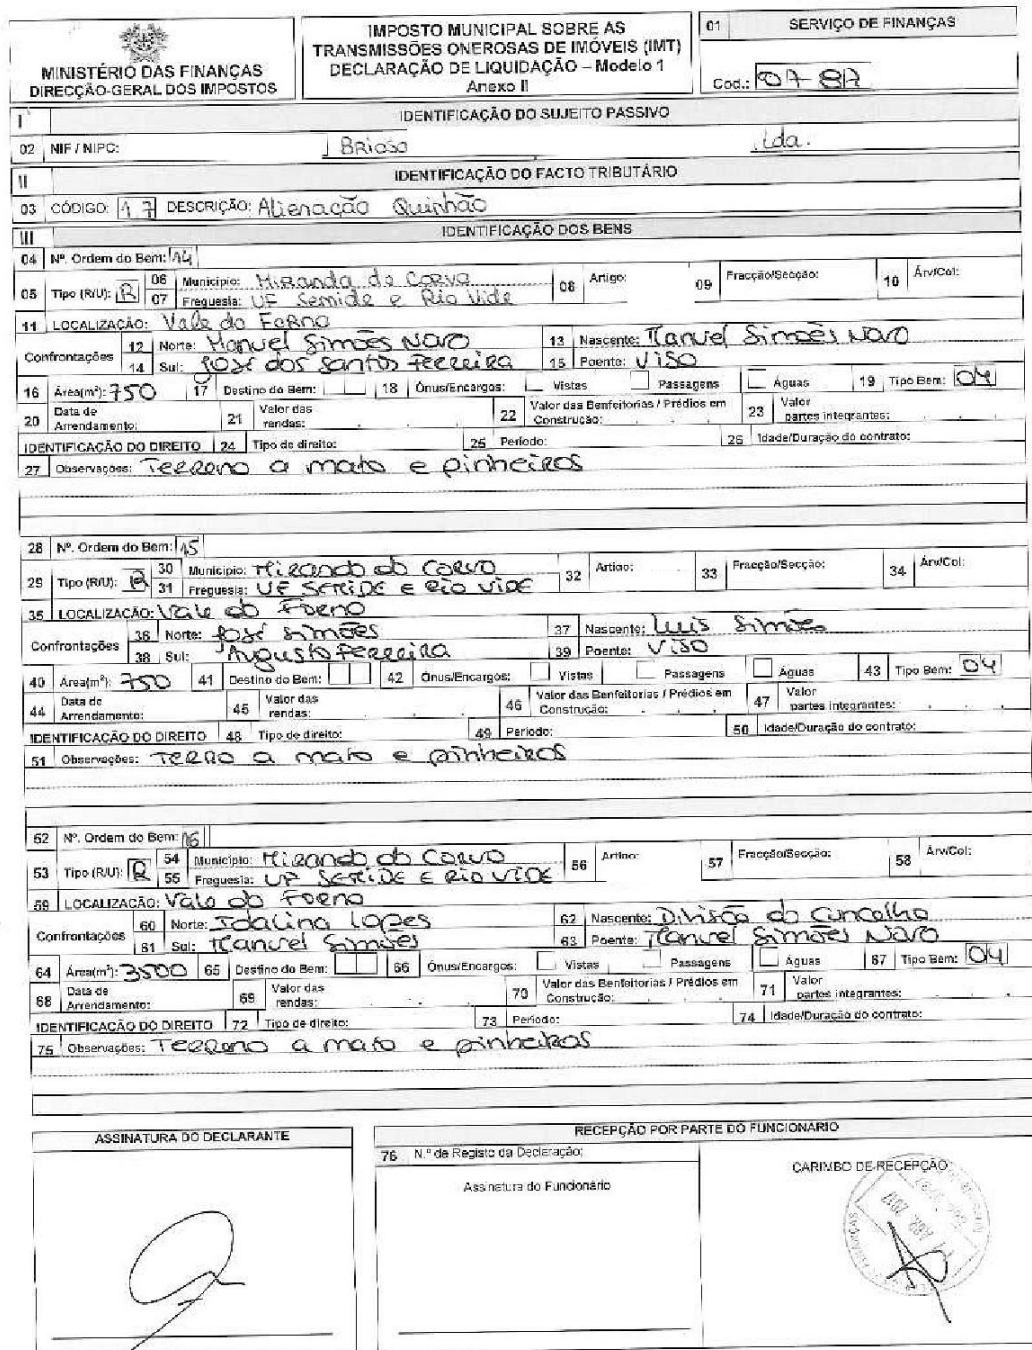 MINISTÉRIO DAS FINANÇAS
DIRECÇÃO-GERAL DOS IMPOSTOS
IMPOSTO MUNICIPAL SOBRE AS
TRANSMISSÕES ONEROSAS DE IMÓVEIS (IMT)
DECLARAÇÃO DE LIQUIDAÇÃO – Modelo 1
Anexo II
01 SERVIÇO DE FINANÇAS
Cod.: 07 87
I IDENTIFICAÇÃO DO SUJEITO PASSIVO
02 NIF / NIPC: Brioso , Lda.
II IDENTIFICAÇÃO DO FACTO TRIBUTÁRIO
03 CÓDIGO: 17 DESCRIÇÃO: Alienação Quinhão
III IDENTIFICAÇÃO DOS BENS
04 Nº. Ordem do Bem: 14
05 Tipo (R/U): R 06 Município: Miranda do Corvo 08 Artigo: 09 Fracção/Secção: 10 Árv/Col:
07 Freguesia: UF Semide e Rio Vide
11 LOCALIZAÇÃO: Vale do Forno
Confrontações 12 Norte: Manuel Simões Novo 13 Nascente: Manuel Simões Novo
14 Sul: José dos Santos Ferreira 15 Poente: Viso
16 Área(m²): 750 17 Destino do Bem: 18 Ónus/Encargos: Vistas Passagens Águas 19 Tipo Bem: 04
20 Data de Arrendamento: 21 Valor das rendas: 22 Valor das Benfeitorias / Prédios em Construção: 23 Valor partes integrantes:
IDENTIFICAÇÃO DO DIREITO 24 Tipo de direito: 25 Período: 26 Idade/Duração do contrato:
27 Observações: Terreno a mato e pinheiros
28 Nº. Ordem do Bem: 15
29 Tipo (R/U): R 30 Município: Miranda do Corvo 32 Artigo: 33 Fracção/Secção: 34 Árv/Col:
31 Freguesia: UF Semide e Rio Vide
35 LOCALIZAÇÃO: Vale do Forno
Confrontações 36 Norte: José Simões 37 Nascente: Luis Simões
38 Sul: Augusto Ferreira 39 Poente: Viso
40 Área(m²): 750 41 Destino do Bem: 42 Ónus/Encargos: Vistas Passagens Águas 43 Tipo Bem: 04
44 Data de Arrendamento: 45 Valor das rendas: 46 Valor das Benfeitorias / Prédios em Construção: 47 Valor partes integrantes:
IDENTIFICAÇÃO DO DIREITO 48 Tipo de direito: 49 Período: 50 Idade/Duração do contrato:
51 Observações: Terro a mato e pinheiros
52 Nº. Ordem do Bem: 16
53 Tipo (R/U): R 54 Município: Miranda do Corvo 56 Artigo: 57 Fracção/Secção: 58 Árv/Col:
55 Freguesia: UF Semide e Rio Vide
59 LOCALIZAÇÃO: Vale do Forno
Confrontações 60 Norte: Idalina Lopes 62 Nascente: Divisão do Concelho
61 Sul: Manuel Simões 63 Poente: Manuel Simões Novo
64 Área(m²): 3500 65 Destino do Bem: 66 Ónus/Encargos: Vistas Passagens Águas 67 Tipo Bem: 04
68 Data de Arrendamento: 69 Valor das rendas: 70 Valor das Benfeitorias / Prédios em Construção: 71 Valor partes integrantes:
IDENTIFICAÇÃO DO DIREITO 72 Tipo de direito: 73 Período: 74 Idade/Duração do contrato:
75 Observações: Terreno a mato e pinheiros
ASSINATURA DO DECLARANTE
RECEPÇÃO POR PARTE DO FUNCIONÁRIO
76 N.º de Registo da Declaração:
Assinatura do Funcionário
CARIMBO DE RECEPÇÃO
ABR. 2017
FINANÇAS